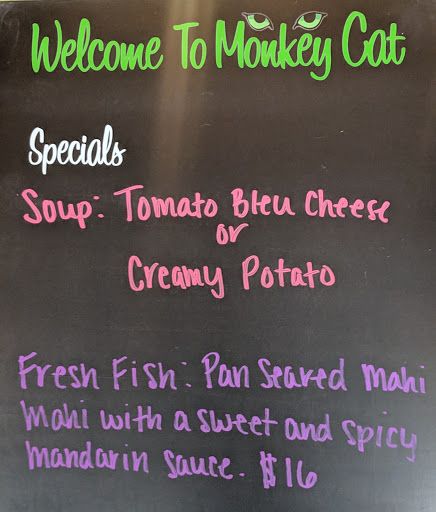 Welcome To Monkey Cat
Specials
Soup: Tomato Bleu Cheese
or
Creamy Potato
Fresh Fish: Pan Seared Mahi
Mahi with a sweet and spicy
mandarin sauce. $16